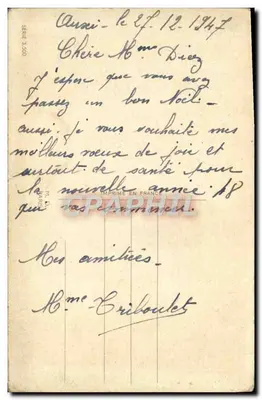 Auxi - le 27.12.1947
Chère Mme Diez
J'espère que vous avez
passez un bon Noël.
aussi je vous souhaite mes
meilleurs voeux de joie et
surtout de santé pour
la nouvelle année 48
qui va commencer.
Mes amitiées -
Mme Triboulet
SÉRIE